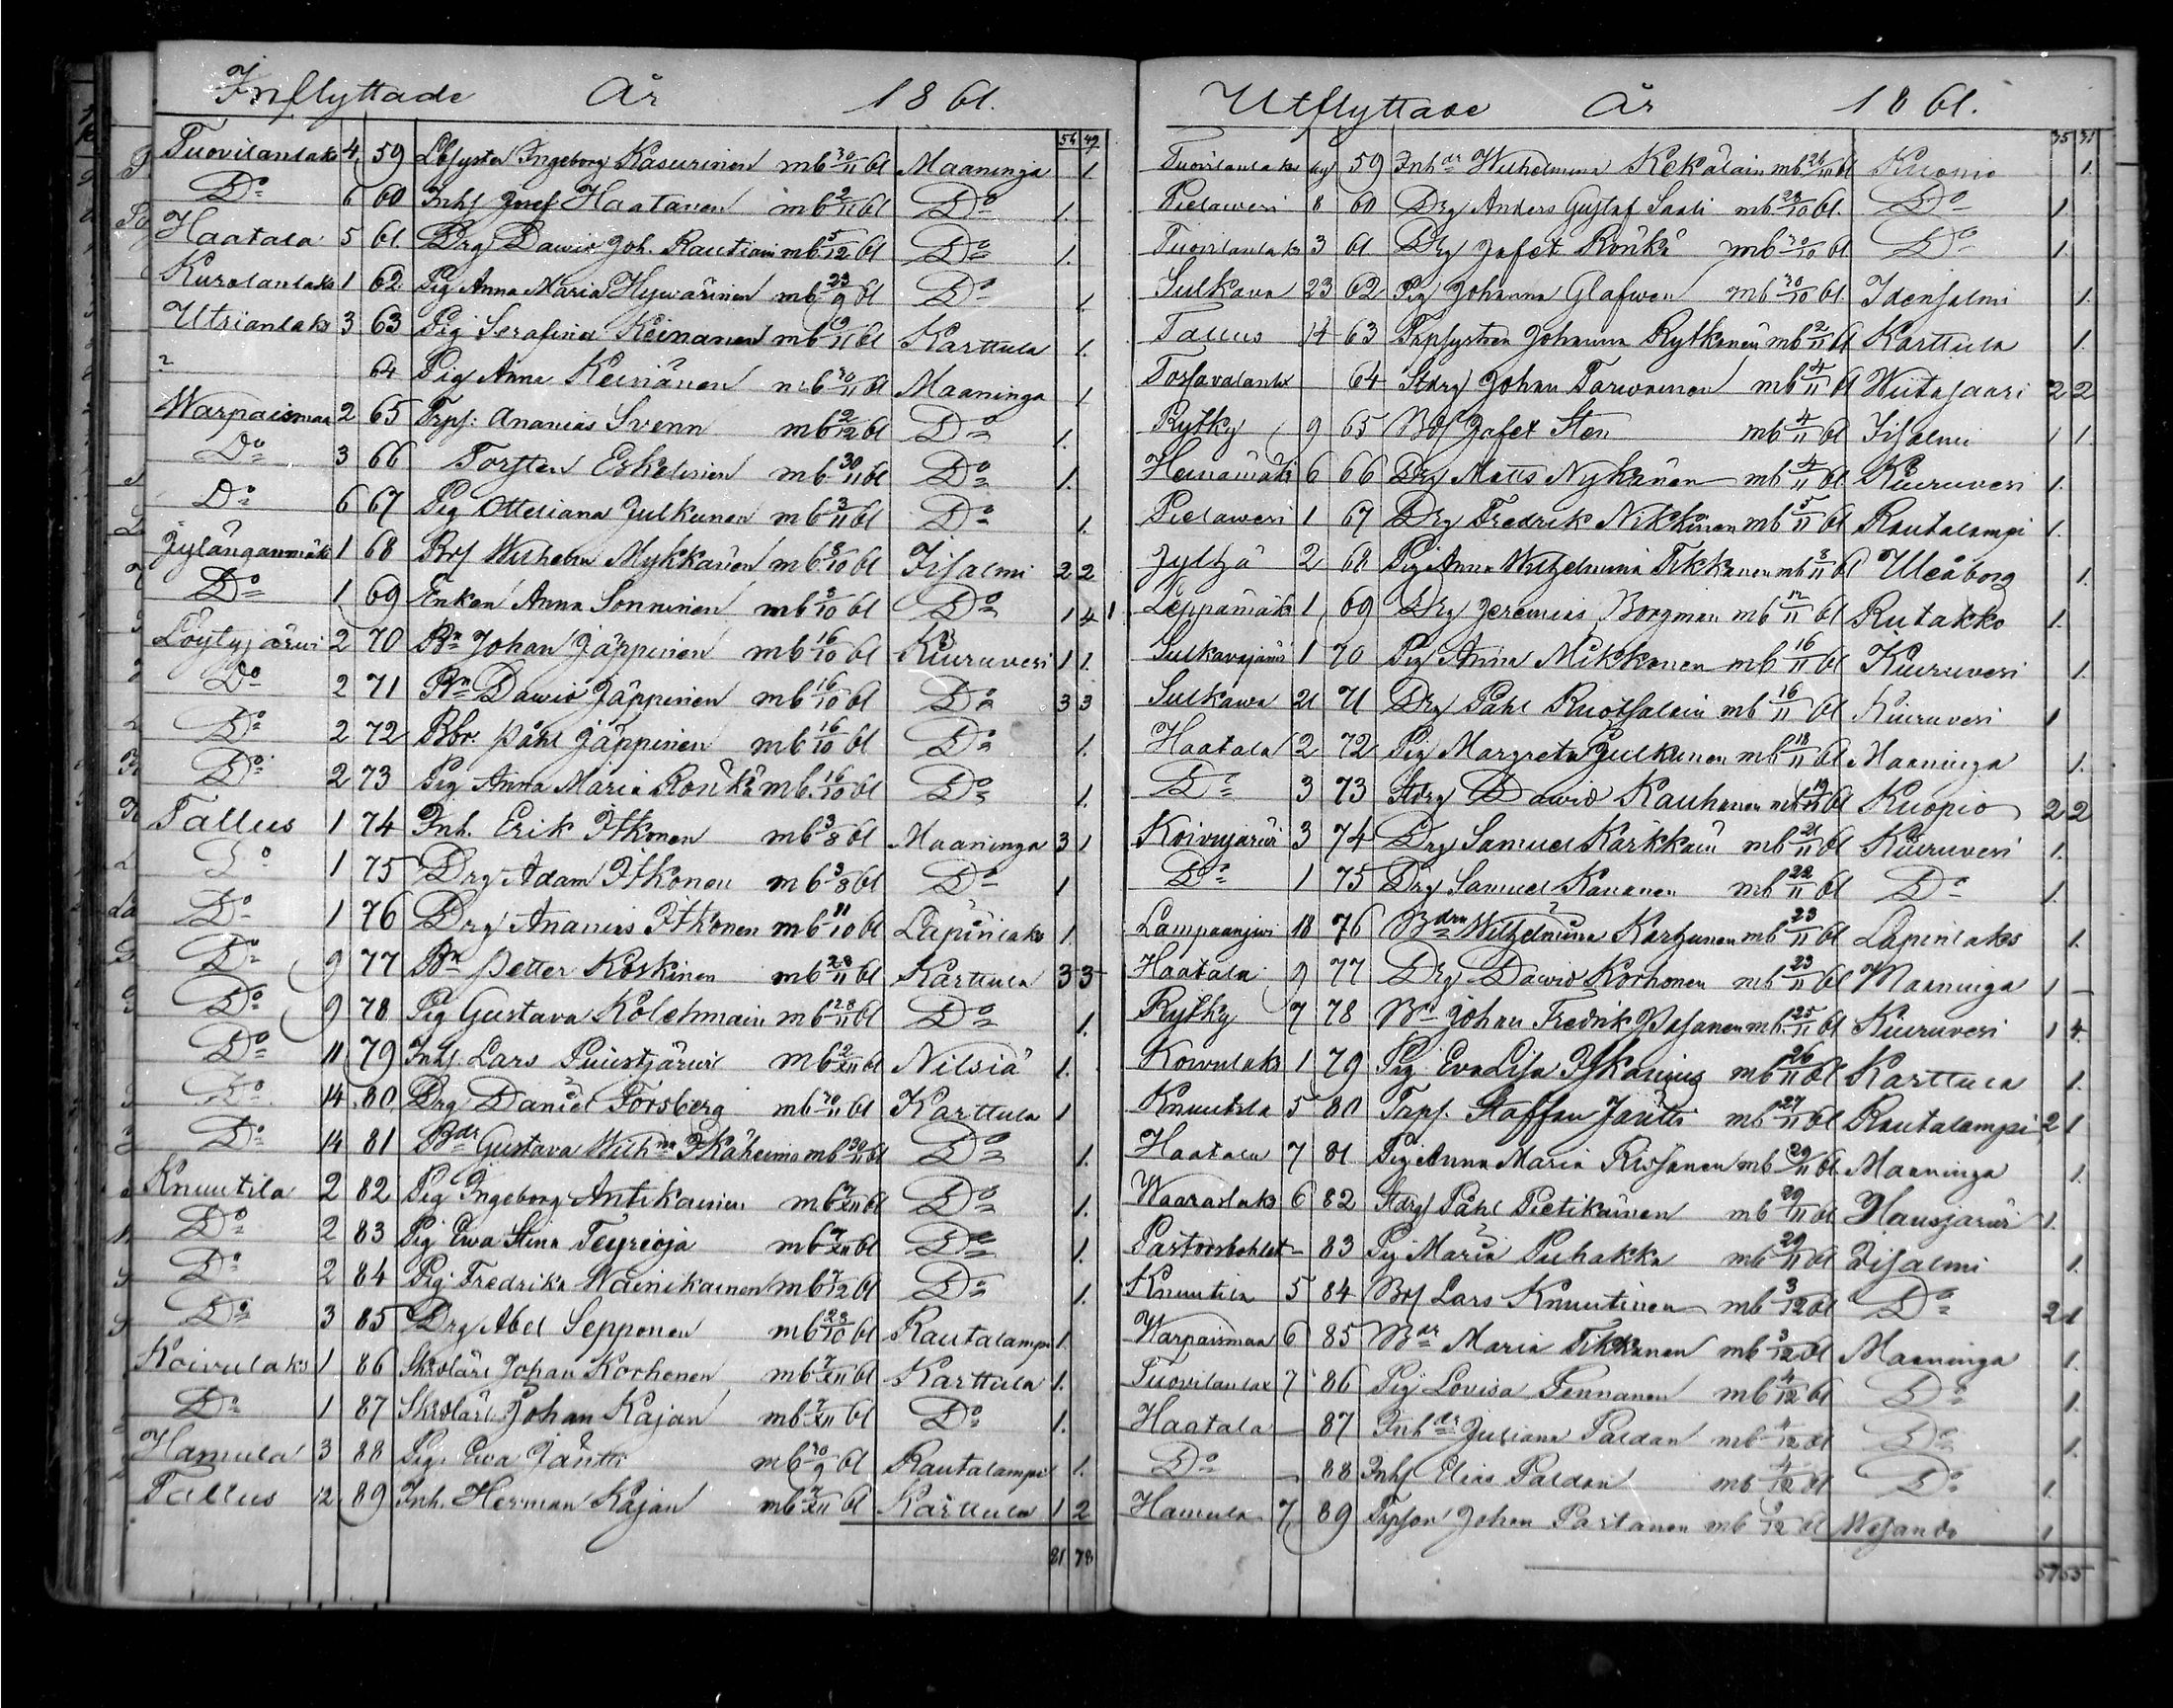 Inflyttade År 1861.
54 49
Tuovilanlaks 4 59 Lbfystr Ingeborg Kasurinen mb 30/11 61 Maaninga 1
Do 6 60 Inhs Josef Haatanen mb 2/11 61 Do 1.
Haatala 5 61 Drg Dawid Joh. Rautiain mb 5/12 61 Do 1.
Kurolanlaks 1 62 Pig Anna Maria Hywärinen mb 23/9 61 Do 1.
Utrianlaks 3 63 Pig Serafina Keinänen mb 9/11 61 Karttula 1.
64 Pig Anna Keinänen mb 30/11 61 Maaninga 1
Warpaismaa 2 65 Trps: Ananias Svenn mb 2/12 61 Do 1.
Do 3 66 Torsten Eskelinen mb 30/11 61 Do 1.
Do 6 67 Pig Otteliana Julkunen mb 3/11 61 Do 1.
Jylänganmäki 1 68 Bos Wilhelm Mykkänen mb 8/10 61 Iisalmi 2 2
Do 1 69 Enkan Anna Sonninen mb 3/10 61 Do 1 4
Löytyjärwi 2 70 Bn Johan Jäppinen mb 16/10 61 Kiuruvesi 1 1.
Do 2 71 Bn Dawid Jäppinen mb 16/10 61 Do 3 3
Do 2 72 Bbr. Påhl Jäppinen mb 16/10 61 Do 1.
Do 2 73 Pig Anna Maria Rönkä mb 16/10 61 Do 1.
Tallus 1 74 Inh. Erik Itkonen mb 3/8 61 Maaninga 3 1
Do 1 75 Drg Adam Itkonen mb 3/8 61 Do 1
Do 1 76 Drg Ananias Itkonen mb 11/10 61 Lapinlaks 1.
Do 9 77 Bn Petter Koskinen mb 28/11 61 Karttula 3 3
Do 9 78 Pig Gustava Kolehmain mb 28/11 61 Do 1.
Do 11 79 Inhs Lars Puustjärwi mb 2/XII 61 Nilsiä 1.
Do 14 80 Drg Daniel Forsberg mb 30/11 61 Karttula 1
Do 14 81 Bdr Gustava Wilhna mb 30/11 61 Do 1.
Knuutila 2 82 Pig Ingeborg Antikainen mb 7/XII 61 Do 1.
Do 2 83 Pig Ewa Stina mb 7/XII 61 Do 1.
Do 2 84 Pig Fredrika Wäinikainen mb 7/12 61 Do 1.
Do 3 85 Drg Abel Sepponen mb 28/10 61 Rautalampi 1.
Koivulaks 1 86 Skrolär Johan Korhonen mb 7/XII 61 Karttula 1.
Do 1 87 Skrolär Johan Kajan mb 7/XII 61 Do 1.
Hamula 3 88 Pig. Ewa Jäntti mb 30/9 61 Rautalampi 1.
Tallus 12 89 Inh. Herman Kajan mb 7/XII 61 Karttula 1 2
81 78
Utflyttade År 1861.
35 31
Tuovilanlaks 59 Inhdr Wilhelmina Kekälain mb 26/10 61 Kuopio 1.
Pielawesi 8 60 Drg Anders Gustaf Saali mb 28/10 61. Do 1
Tuovilanlaks 3 61 Drg Jafet Rönkä mb 30/10 61 Do 1.
Sulkava 23 62 Pig Johanna Glafwen mb 30/10 61 Idensalmi 1.
Tallus 14 63 Trpsystren Johanna Rytkönen mb 2/11 61 Karttula 1.
64 Stdrg Johan Tarwainen mb 4/11 61 Wiitasaari 2 2
Rytky 9 65 Bos Jafet Sten mb 4/11 61 Iisalmi 1 1
Heinämäki 6 66 Drg Matts Nykänen mb 4/11 61 Kiuruvesi 1.
Pielawesi 1 67 Drg Fredrik Nikkinen mb 5/11 61 Rautalampi 1.
Jylhä 2 68 Pig Anna Wilhelmina Tikkanen mb 8/11 61 Uleåborg 1.
1 Leppämäki 1 69 Drg Jeremias Borgman mb 12/11 61 Rutakko 1.
Sulkavajärwi 1 70 Pig Anna Mikkonen mb 16/11 61 Kiuruvesi 1.
Sulkawa 21 71 Drg Påhl Ruotsalain mb 16/11 61 Kiuruvesi 1
Haatala 2 72 Pig Margreta Julkunen mb 18/11 61 Maaninga 1.
Do 3 73 Stdrg Dawid Kauhanen mb 19/11 61 Kuopio 2 2
Koivujärwi 3 74 Drg Samuel Kärkkäin mb 21/11 61 Kiuruvesi 1.
Do 1 75 Drg Samuel Kananen mb 22/11 61 Do 1.
Lampaanjärwi 18 76 Bdrn Wilhelmina Karhunen mb 23/11 61 Lapinlaks 1.
Haatala 9 77 Drg Dawid Korhonen mb 23/11 61 Maaninga 1 –
Rytky 7 78 Bn Johan Fredrik Pasanen mb 25/11 61 Kiuruvesi 1 4
Koivulaks 1 79 Pig Eva Lisa mb 26/11 61 Karttula 1.
Knuutila 5 80 Trps. Staffan Jäntti mb 27/11 61 Rautalampi 2 1
Haatala 7 81 Pig Anna Maria Rissanen mb 29/11 61 Maaninga 1.
Waaraslaks 6 82 Stdrg Påhl Pietikäinen mb 29/11 61 Hausjärwi 1.
Pastorsbohlet – 83 Pig Maria Puhakka mb 29/11 61 Iisalmi 1.
Knuutila 5 84 Bos Lars Knuutinen mb 3/12 61 Do 2 1
Warpaismaa 6 85 Bdr Maria Tikkanen mb 3/12 61 Maaninga 1.
Tuovilanlax 7 86 Pig Lovisa Pennanen mb 4/12 61 Do 1.
Haatala – 87 Inhdr Juliana Paldan mb 4/12 61 Do 1.
Do – 88 Inhs Elias Paldan mb 4/12 61 Do 1.
Hamula 7 89 Trpson Johan Partanen mb 9/12 61 Wesando 1
57 55